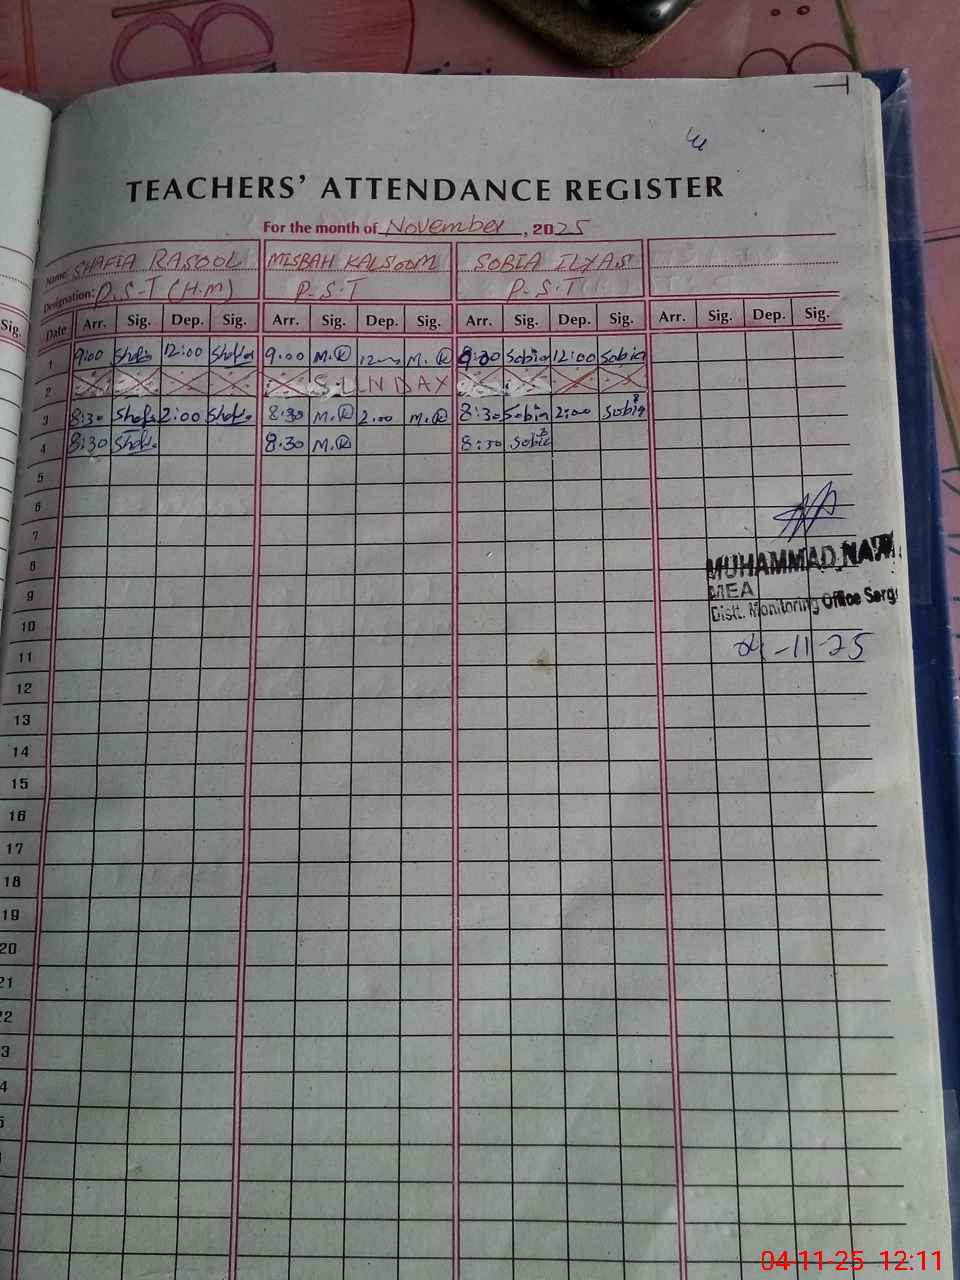 TEACHERS' ATTENDANCE REGISTER
For the month of November, 2025
Name: SHAFIA RASOOL MISBAH KALSOOM SOBIA ILYAS
Designation: P.S.T (H.M) P-S.T P-S.T
Date Arr. Sig. Dep. Sig. Arr. Sig. Dep. Sig. Arr. Sig. Dep. Sig. Arr. Sig. Dep. Sig.
Sig.
1 9:00 12:00 9:00 M.K M.K Sobia 12:00 Sobia
2 SUNDAY
3 8:30 2:00 8:30 M.K 2:00 M.K 8:30 Sobia 2:00 Sobia
4 8:30 8:30 M.K 8:30 Sobia
5
6
7
8
9
10
11
12
13
14
15
16
17
18
19
20
21
22
3
4
MUHAMMAD
MEA
Distt. Monitoring Office Sarg
04-11-25
04-11-25 12:11